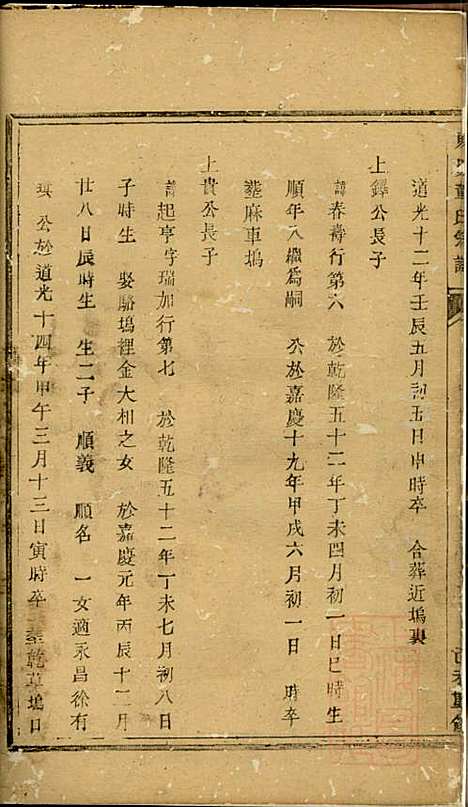 道光十二年壬辰五月初五日申時卒　合葬近塢裏
上鐸公長子
諱春壽行第六　於乾隆五十二年丁未四月初一日巳時生
順年入繼為嗣　公於嘉慶十九年甲戌六月初一日　時卒
塟麻車塢
上貴公長子
諱起亨字瑞加行第七　於乾隆五十二年丁未七月初八日
子時生　娶駱塢裡金大相之女　於嘉慶元年丙辰十二月
廿八日辰時生　生二子　順義　順名　一女適永昌徐有
琪　公於道光十四年甲午三月十三日寅時卒　塟乾草塢日